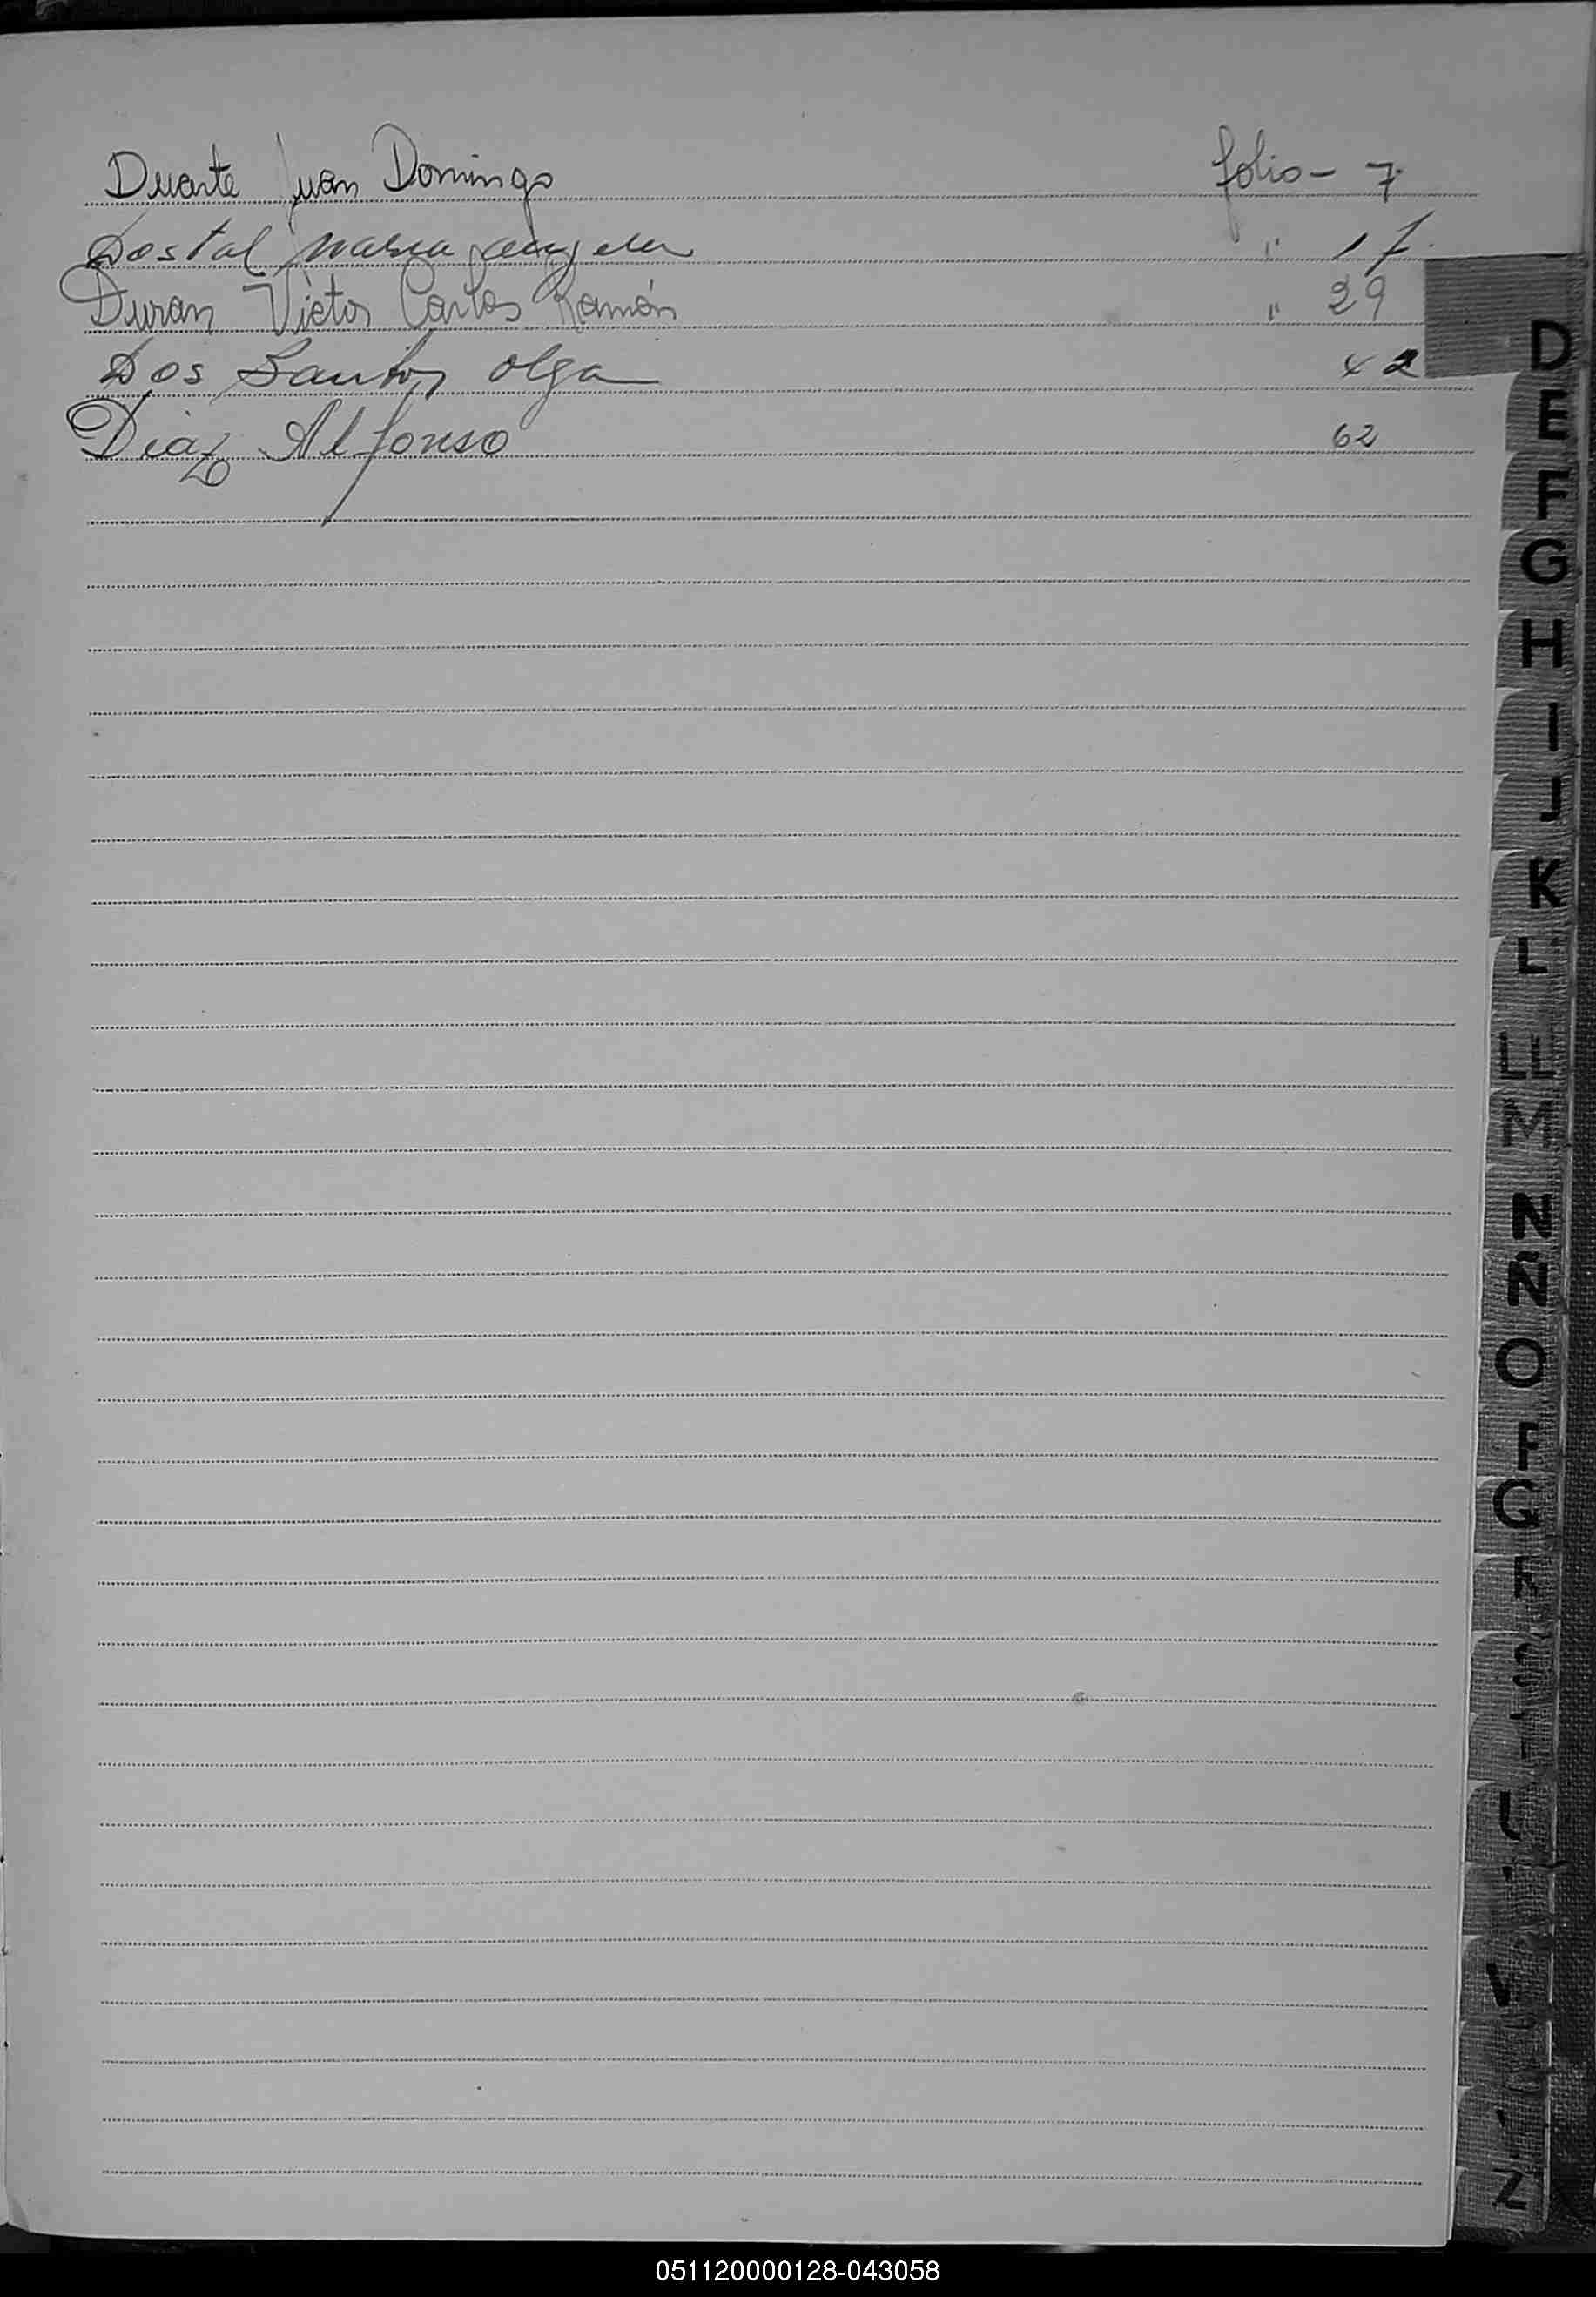 Duarte Juan Domingo folio - 7.
Dostal Maria Angela " 17.
Duran Victor Carlos Ramón " 29
Dos Santos Olga 42
Diaz Alfonso 62
D
E
F
G
H
I
J
K
L
LL
M
N
Ñ
O
P
Q
R
S
Z
051120000128-043058